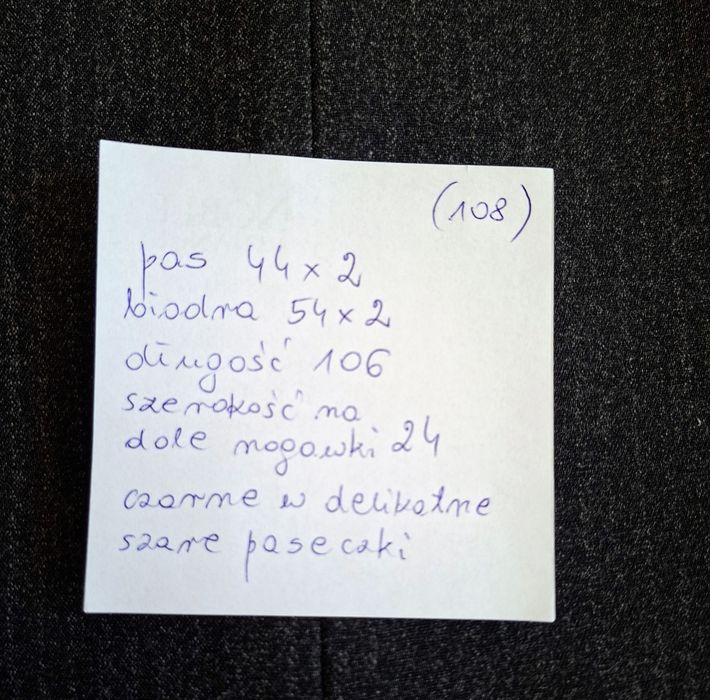 (108)
pas 44 x 2
biodra 54 x 2
długość 106
szerokość na
dole nogawki 24
czarne w delikatne
szare paseczki